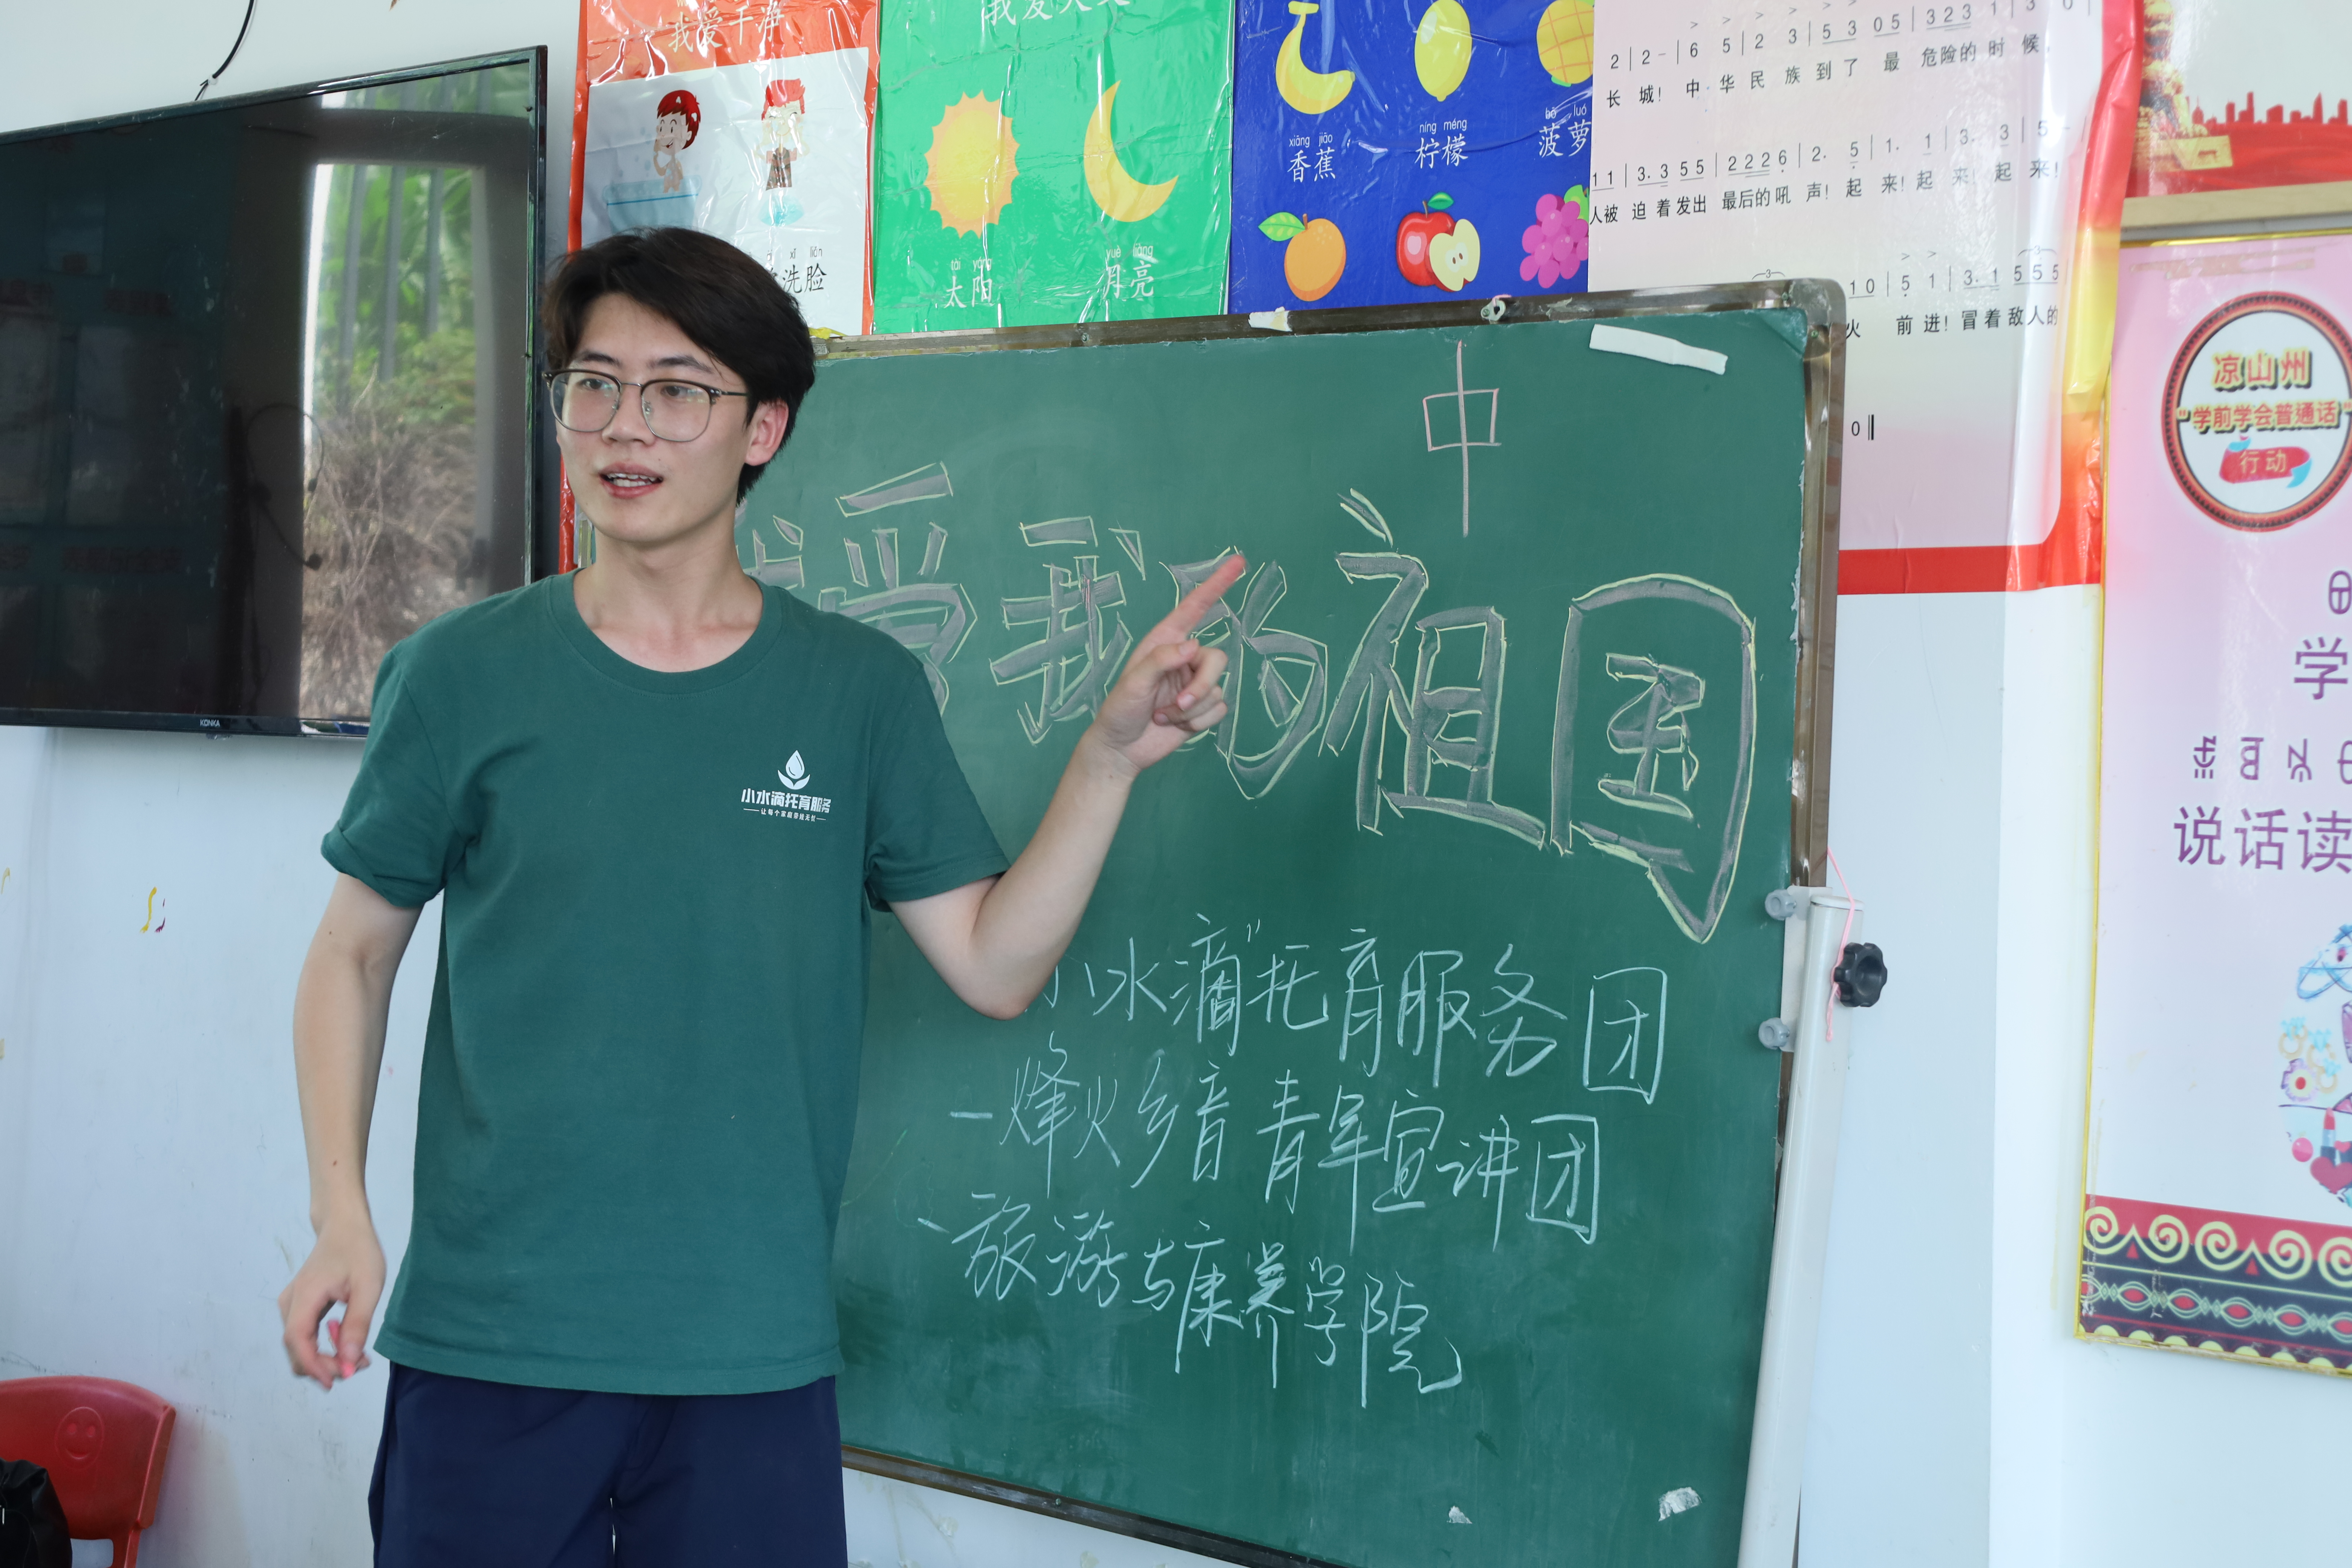 我爱干净
我爱大
xǐ liǎn
洗脸
tài yáng
太阳
yuè liàng
月亮
xiāng jiāo
香蕉
níng méng
柠檬
bō luó
菠萝
2 | 2 - | 6 5 | 2 3 | 5 3 05 | 323 1 | 3 0 |
长城! 中华民族到了最危险的时候,
1 1 | 3. 3 5 5 | 2 2 2 6 | 2. 5 | 1. 1 | 3. 3 | 5 -
人被迫着发出最后的吼声! 起来! 起来! 起来!
1 0 | 5 1 | 3. 1 5 5 5
火 前进! 冒着敌人的
0
凉山州
"学前学会普通话"
行动
学
说话读
KONKA
小水滴托育服务
中
我爱我的祖国
小水滴"托育服务团
一烽火乡音青年宣讲团
、旅游与康养学院